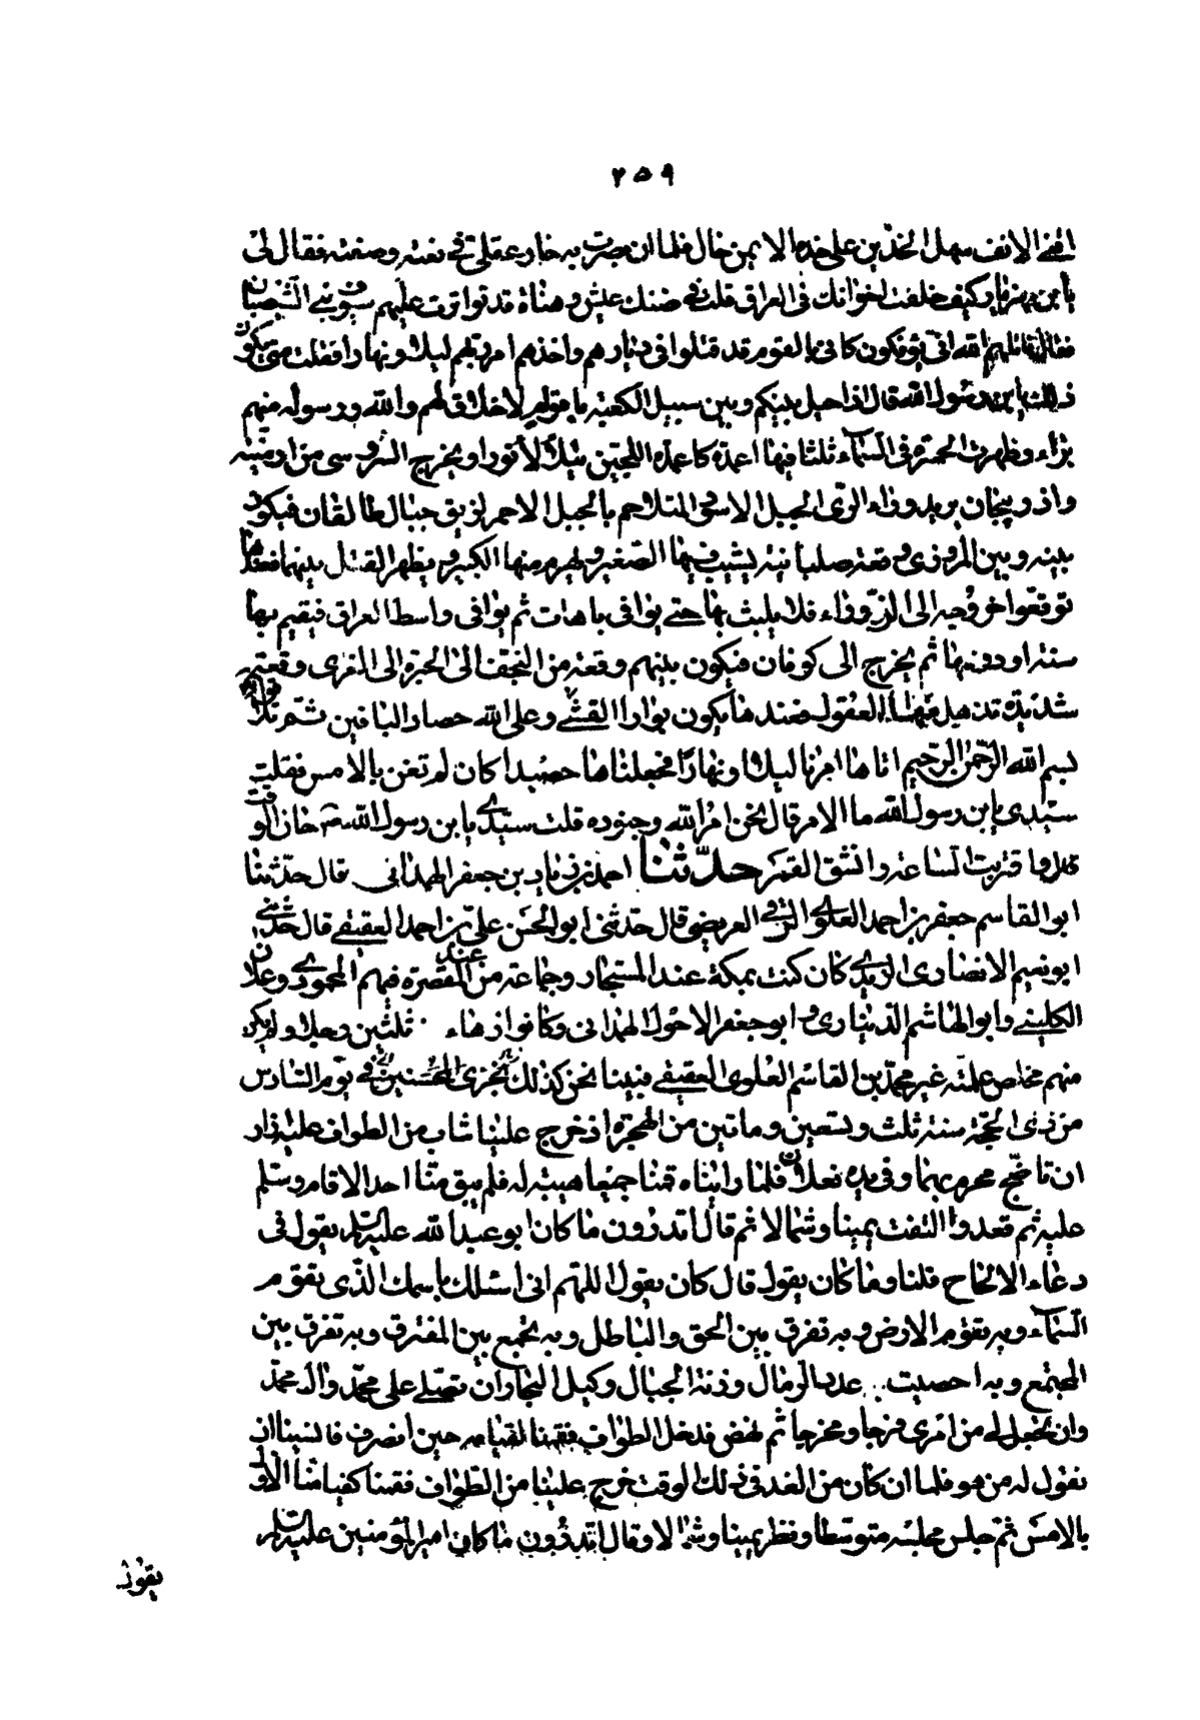 ٢٥٩
اقنى الانف سهل الخدين على خده الايمن خال فلما ان بصرت به حار عقلى فى نعته وصفته فقال لى
يابن مهزيار كيف خلفت اخوانك فى العراق قلت فى ضنك عيش وهناة قد تواترت عليهم سيوف بنى الشيصبان
فقال قاتلهم الله انى يؤفكون كانى بالقوم قد قتلوا فى ديارهم واخذهم امر ربهم ليلا ونهارا فقلت متى يكون
ذلك يابن رسول الله قال اذا حيل بينكم وبين سبيل الكعبة باقوام لا خلاق لهم والله ورسوله منهم
براء وظهرت الحمرة فى السماء ثلثا فيها اعمدة كاعمدة اللجين يتلألأ نورا ويخرج السروسى من ارمنية
واذربيجان يريد وراء الرى الجبل الاسود المتلاحم بالجبل الاحمر لزيق جبال طالقان فيكون
بينه وبين المروزى وقعة صلبانية يشيب فيها الصغير ويهرم منها الكبير ويظهر القتل بينهما فعندها
توقعوا خروجه الى الزوراء فلا يلبث بها حتى يوافى باهات ثم يوافى واسط العراق فيقيم بها
سنة او دونها ثم يخرج الى كوفان فيكون بينهم وقعة من النجف الى الحيرة الى الغرى وقعة
شديدة تذهل منها العقول فعندها يكون بوار الفئتين وعلى الله حصاد الباقين ثم تلا قوله
بسم الله الرحمن الرحيم اتاها امرنا ليلا او نهارا فجعلناها حصيدا كان لم تغن بالامس فقلت
سيدى يابن رسول الله ما الامر قال نحن امر الله وجنوده قلت سيدى يابن رسول الله حان الوقت
قال واقتربت الساعة وانشق القمر حدثنا احمد بن زياد بن جعفر الهمدانى قال حدثنا
ابو القاسم جعفر بن احمد العلوى الرقى العريضى قال حدثنى ابو الحسن على بن احمد العقيقى قال حدثنى
ابو نعيم الانصارى الزيدى قال كنت بمكة عند المستجار وجماعة من المقصرة فيهم المحمودى وعلان
الكلينى وابو الهاشم الدينارى وابو جعفر الاحول الهمدانى وكانوا زهاء ثلثين رجلا ولم يكن
منهم مخلص علمته غير محمد بن القاسم العلوى العقيقى فبينا نحن كذلك نجزى المحسنين فى يوم السادس
من ذى الحجة سنة ثلث وتسعين وماتين من الهجرة اذ خرج علينا شاب من الطواف عليه ازار
ان ناصح محرم بهما وفى يده نعلان فلما رايناه قمنا جميعا هيبة له فلم يبق منا احد الا قام وسلم
عليه ثم قعد والتفت يمينا وشمالا ثم قال اتدرون ما كان ابو عبد الله عليه السلم يقول فى
دعاء الالحاح قلنا وما كان يقول قال كان يقول اللهم انى اسئلك باسمك الذى تقوم
السماء وبه تقوم الارض وبه تفرق بين الحق والباطل وبه تجمع بين المفترق وبه تفرق بين
المجتمع وبه احصيت عدد الرمال وزنة الجبال وكيل البحار ان تصلى على محمد وال محمد
وان تجعل لى من امرى فرجا ومخرجا ثم نهض فدخل الطواف فقمنا لقيامه حين انصرف فانسينا ان
نقول له من هو فلما ان كان من الغد فى ذلك الوقت خرج علينا من الطواف فقمنا كقيامنا الاول
بالامس ثم جلس مجلسه متوسطا ونظر يمينا وشمالا وقال اتدرون ما كان امير المؤمنين عليه السلم
يقول